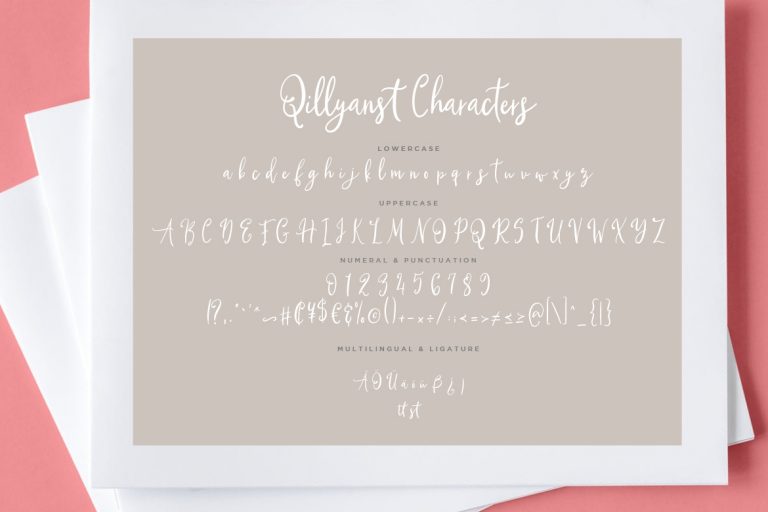 Qillyanst Characters
LOWERCASE
a b c d e f g h i j k l m n o p q r s t u v w x y z
UPPERCASE
A B C D E F G H I J K L M N O P Q R S T U V W X Y Z
NUMERAL & PUNCTUATION
0 1 2 3 4 5 6 7 8 9
!?,."'^~#₡¥$€&%©()+-×÷/:;<=>≠≤≥@[\]^_{|}
MULTILINGUAL & LIGATURE
Ä Ö Ü ä ö ü β ¿ ¡
tt st